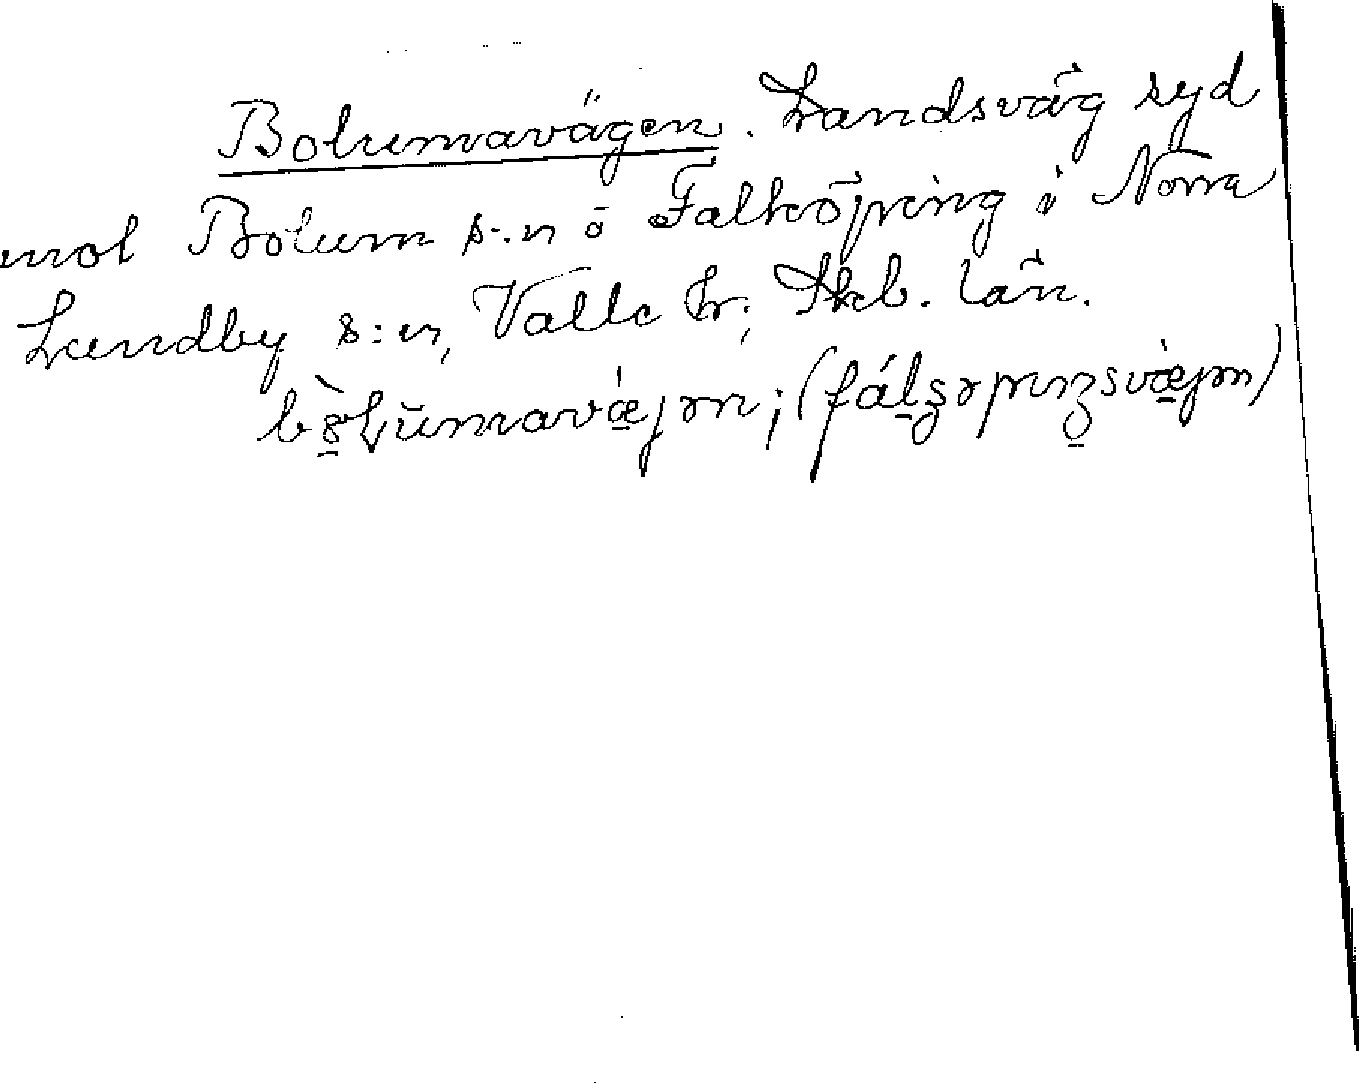 Bolumavägen. Landsväg syd
mot Bolum s:n o Falköping i Norra
Lundby s:n, Valle hr; Skb. län.